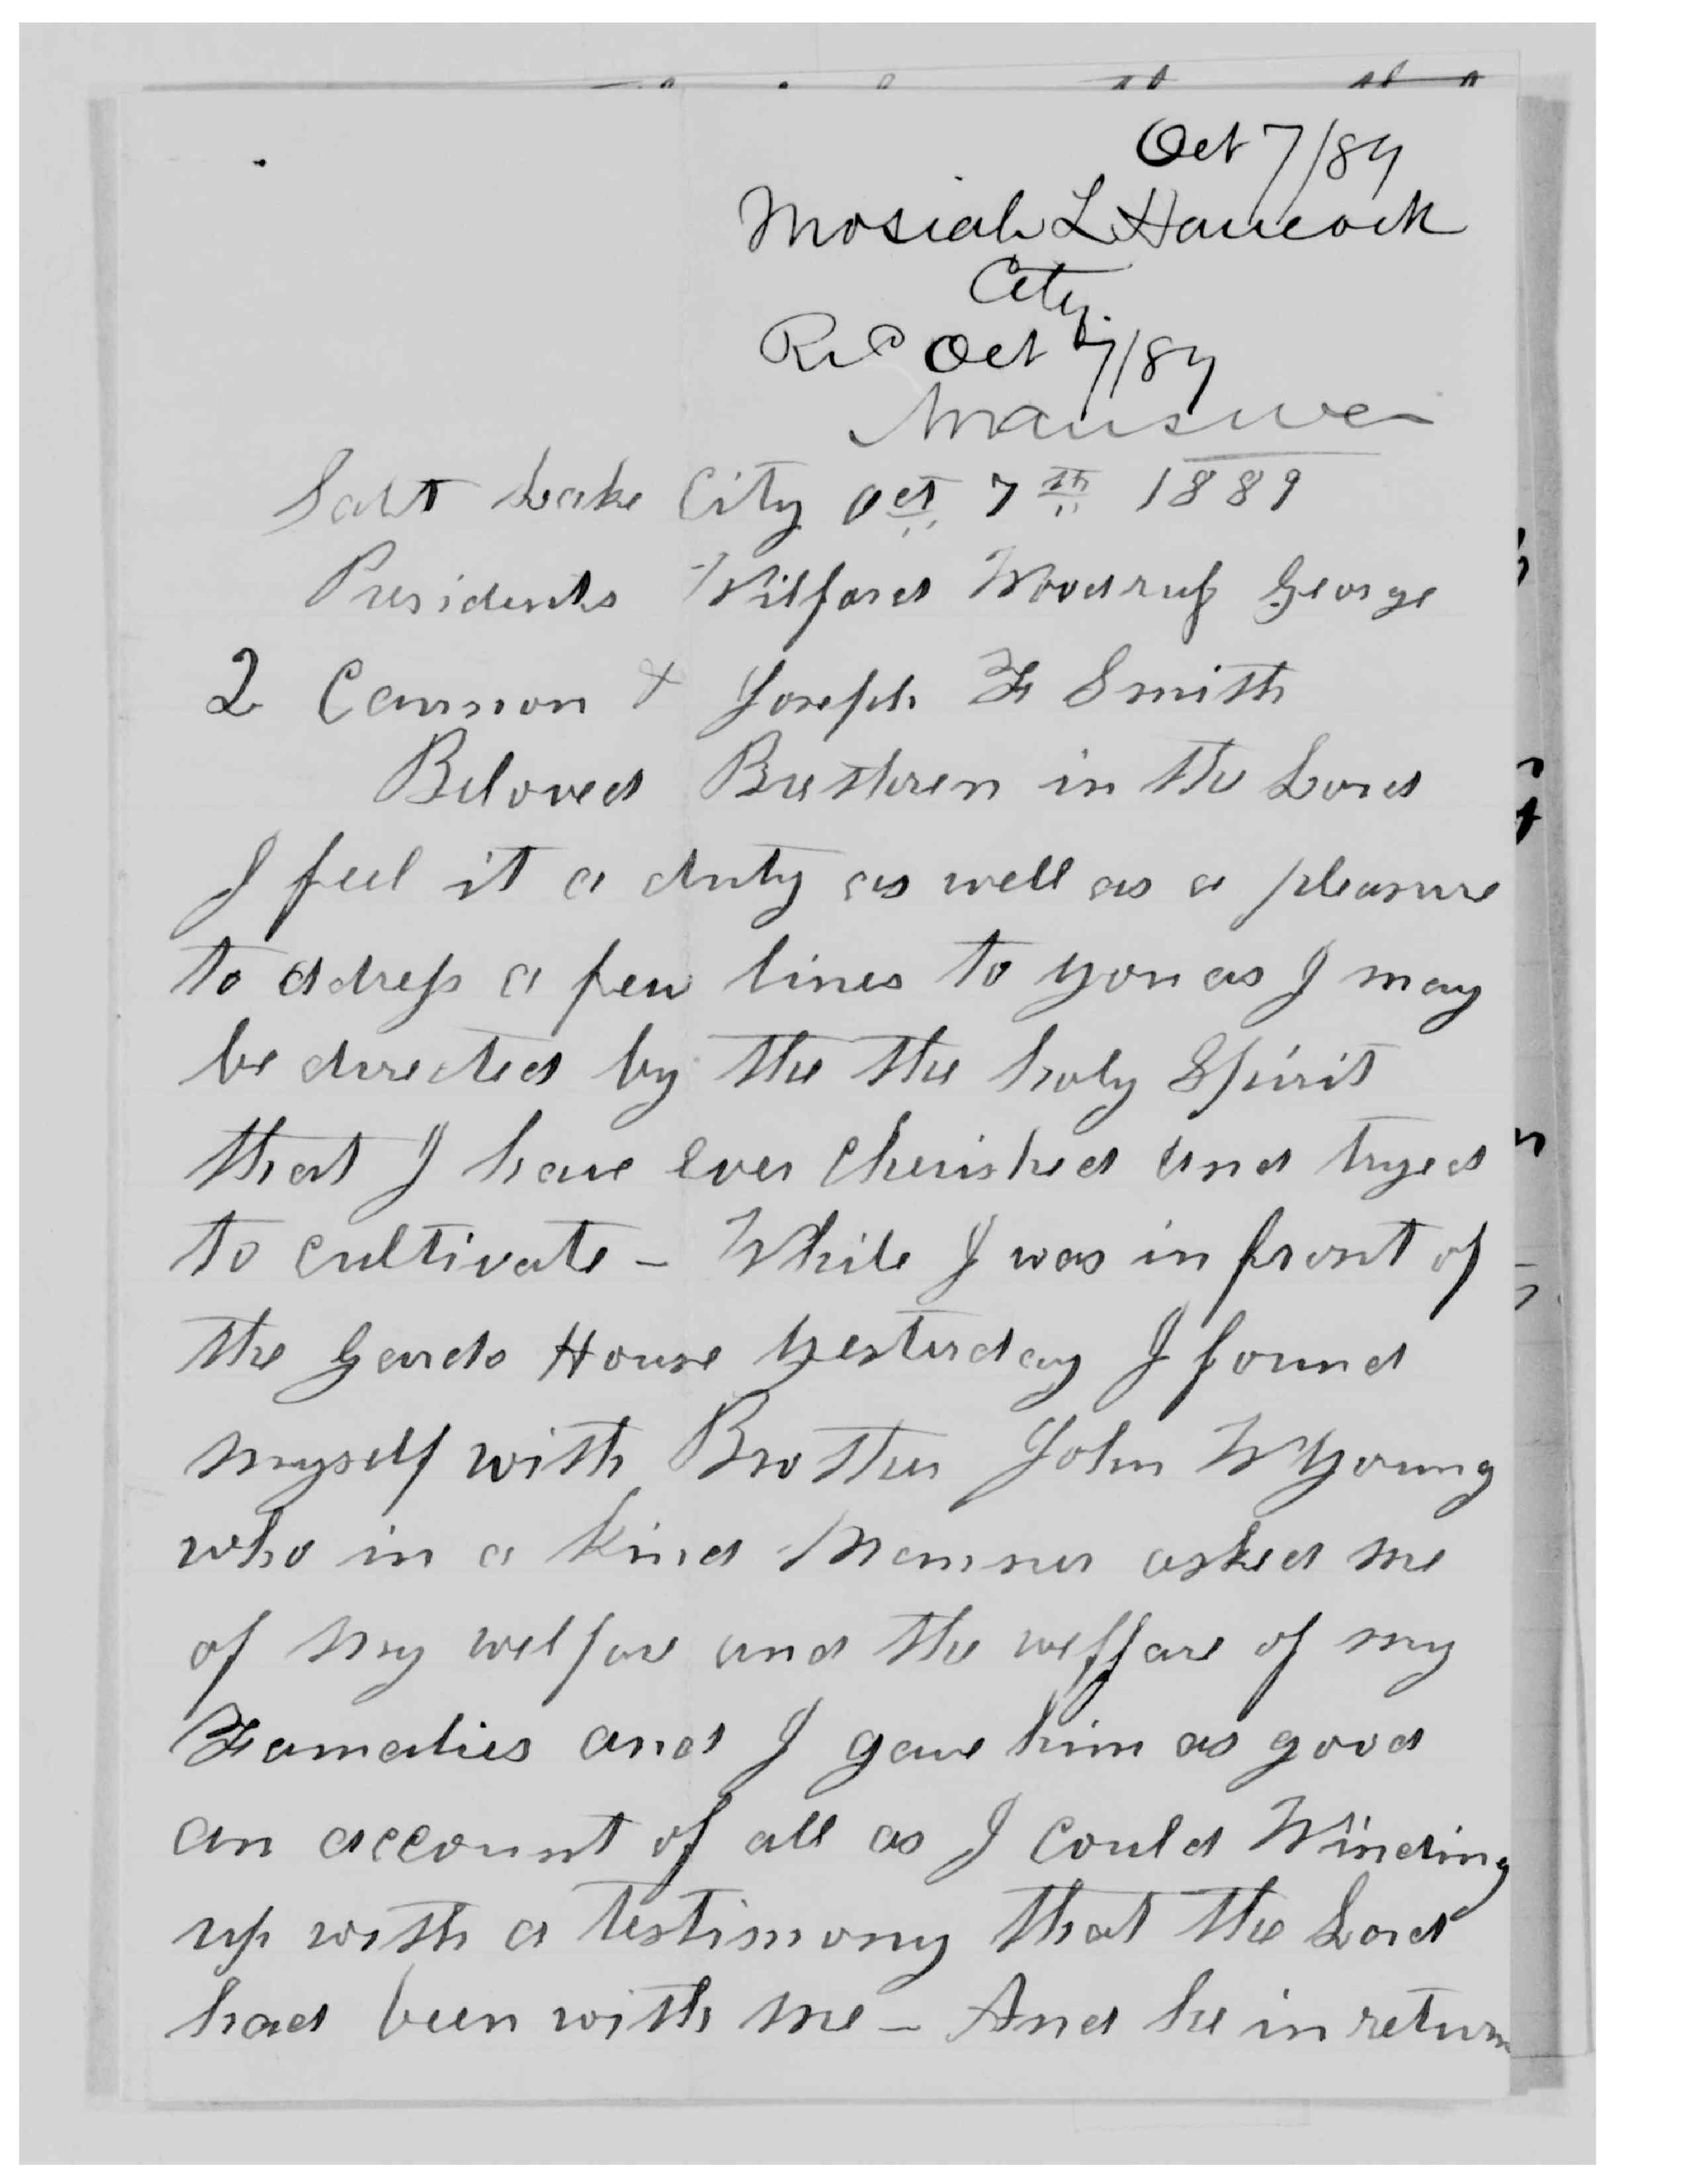 Oct 7/89
Mosiah L Hancock
City.
Rec Oct 7/89
No answer
Salt Lake City Oct 7th 1889
Presidents Wilford Woodruf George
Q Cannon & Joseph F Smith
Beloved Brethren in the Lord
I feel it a duty as well as a pleasure
to adress a few lines to you as I may
be directed by the the holy Spirit
that I have ever cherished and tryed
to cultivate - While I was in front of
the Gardo House yesturday I found
myself with Brother John W Young
who in a kind Manner asked me
of my welfare and the welfare of my
Famalies and I gave him as good
an account of all as I could Winding
up with a testimony that the Lord
had been with me - And he in return